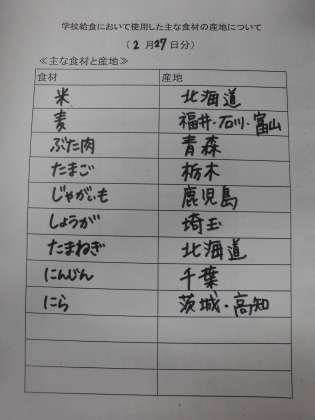 学校給食において使用した主な食材の産地について
(2月27日分)
≪主な食材と産地≫
食材 産地
米 北海道
麦 福井・石川・富山
ぶた肉 青森
たまご 栃木
じゃがいも 鹿児島
しょうが 埼玉
たまねぎ 北海道
にんじん 千葉
にら 茨城・高知